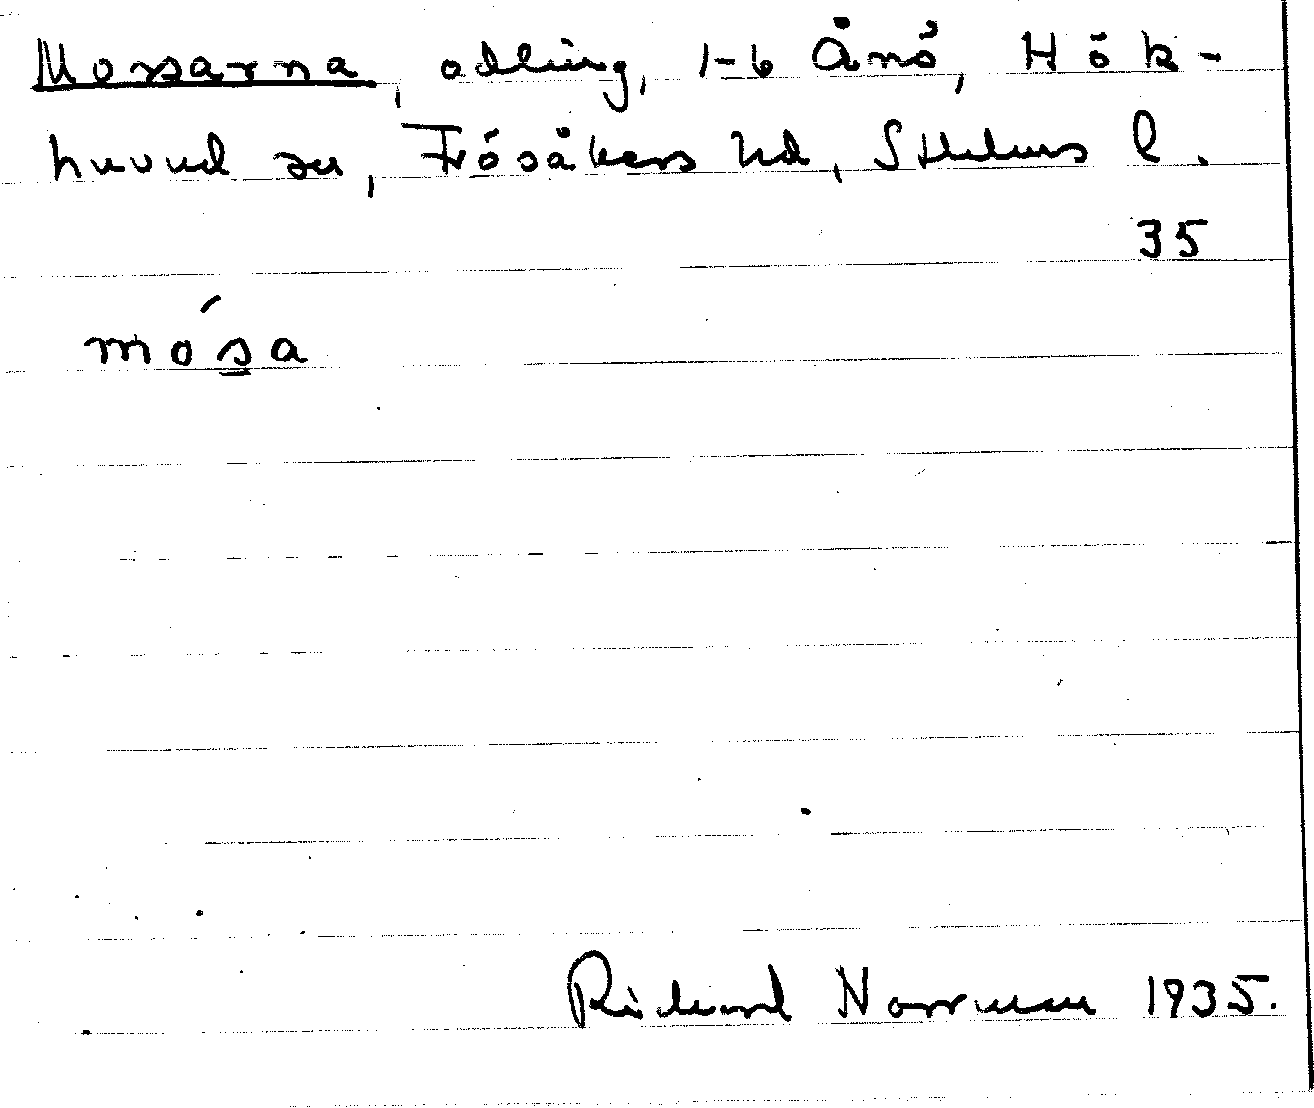 Mossarna, odling, 1-6 Ånö, Hök-
huvud sn, Frösåkers hd, Sthlms l.
35
mósa
Richard Norrman 1935.